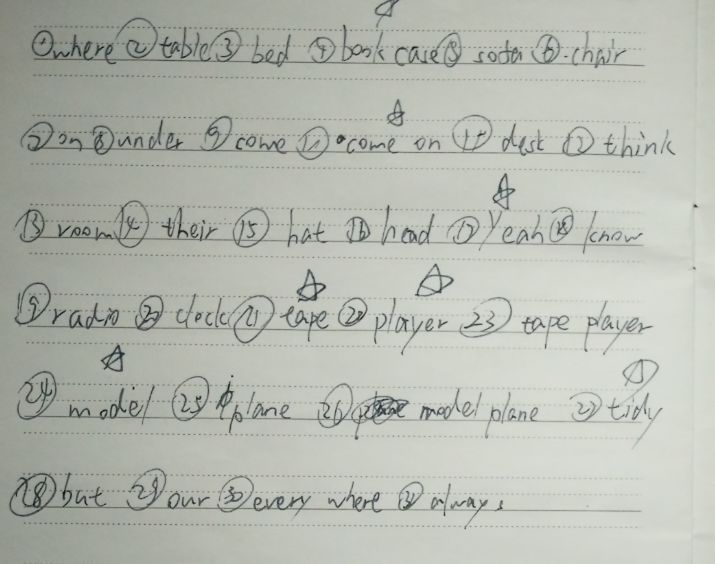 ①where ②table ③ bed ④ book case ⑤ sofa ⑥.chair
⑦on ⑧under ⑨come ⑩•come on ⑪ desk ⑫ think
⑬ room ⑭ their ⑮ hat ⑯ head ⑰ Yeah ⑱ know
⑲radio ⑳ clock ㉑ tape ㉒ player ㉓ tape player
㉔ model ㉕ plane ㉖ model plane ㉗ tidy
㉘ but ㉙ our ㉚ every where ㉛ always